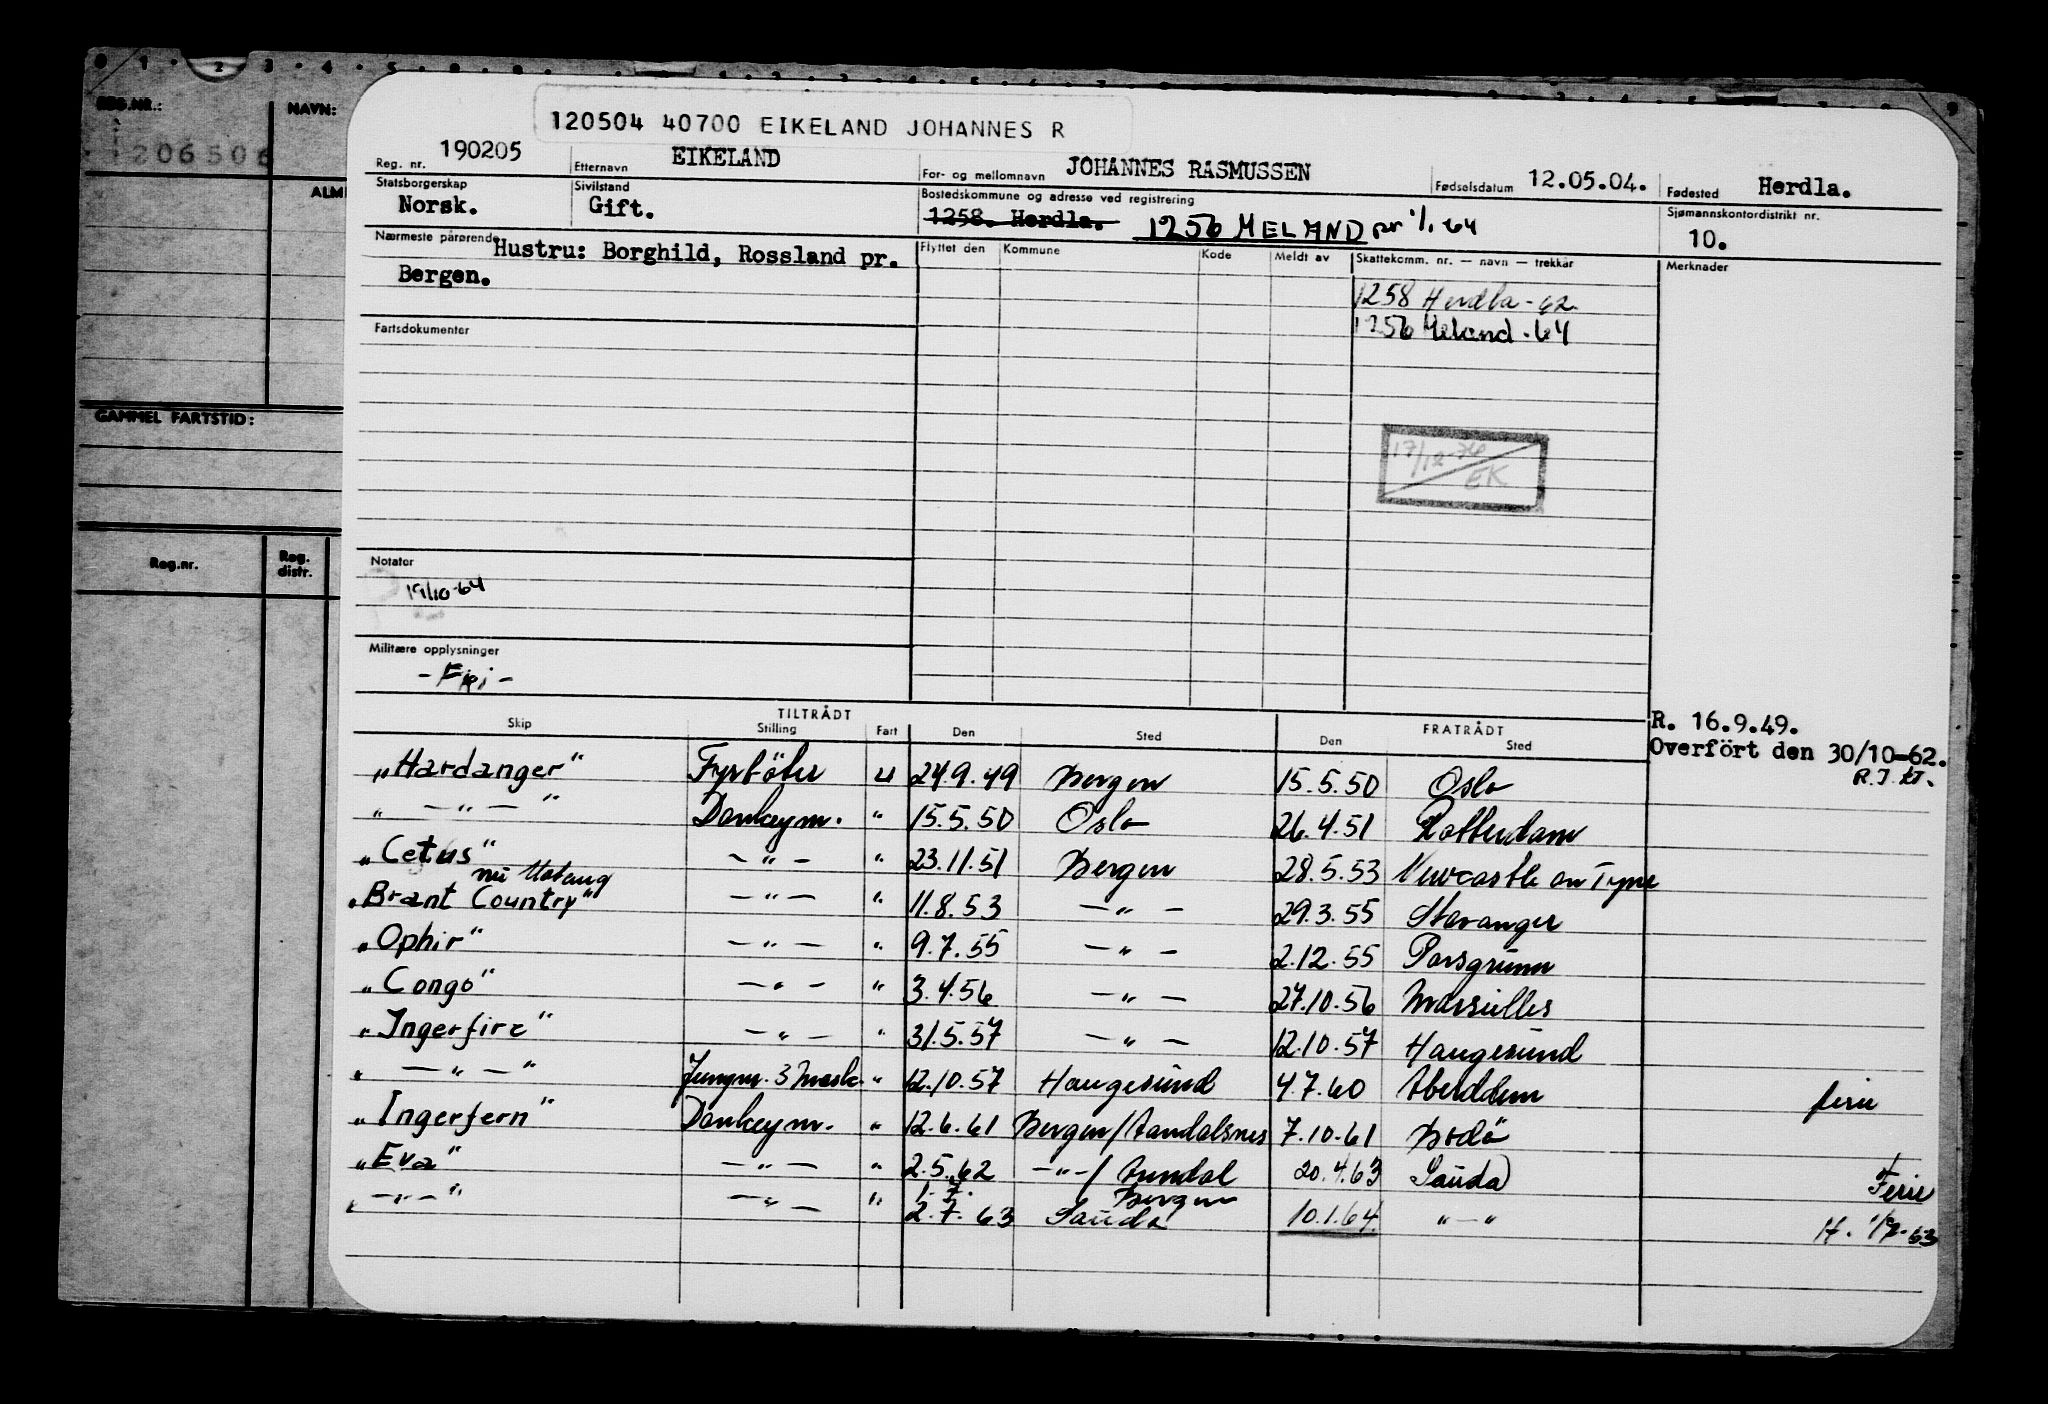 REG.NR.: NAVN:
206506
ALM
GAMMEL FARTSTID:
Reg.nr. Reg. distr.
120504 40700 EIKELAND JOHANNES R
Reg. nr. 190205 Etternavn EIKELAND For- og mellomnavn JOHANNES RASMUSSEN Fødselsdatum 12.05.04. Fødested Herdla.
Statsborgerskap Sivilstand Bostedskommune og adresse ved registrering Sjømannskontordistrikt nr.
Norsk. Gift. 1258. Herdla. 1256 MELAND pr 1/1 64 10.
Nærmeste pårørende Hustru: Borghild, Rossland pr. Flyttet den Kommune Kode Meldt av Skattekomm. nr. — navn — trekkår Merknader
Bergen. 1258 Herdla - 62
Fartsdokumenter 1256 Meland - 64
17/12-76
EK
Notater
19/10-64
Militære opplysninger
- Fri -
R. 16.9.49.
Overfört den 30/10-62.
TILTRÅDT FRATRÅDT
Skip Stilling Fart Den Sted Den Sted
„Hardanger" Fyrböter u 24.9.49 Bergen 15.5.50 Oslo
„ — " — " Donkeym. " 15.5.50 Oslo 26.4.51 Rotterdam
„Cetus" — " — " 23.11.51 Bergen 28.5.53 Newcastle on Tyne
nu
„Brant Country" — " — " 11.8.53 — " — 29.3.55 Stavanger
„Ophir" — " — " 9.7.55 — " — 2.12.55 Porsgrunn
„Congo" — " — " 3.4.56 — " — 27.10.56 Marseilles
„Ingerfire" — " — " 31.5.57 — " — 12.10.57 Haugesund
„ — " — " Jungm. 3 mask. " 12.10.57 Haugesund 4.7.60 Aberdeen ferie
„Ingerfern" Donkeym. " 12.6.61 Bergen/Aandalsnes 7.10.61 Bodö
„Eva" — " — " 2.5.62 — " — / Arendal 20.4.63 Sauda Ferie
1.7. Bergen
„ — " — " — " — " 2.7.63 Sauda 10.1.64 " — "